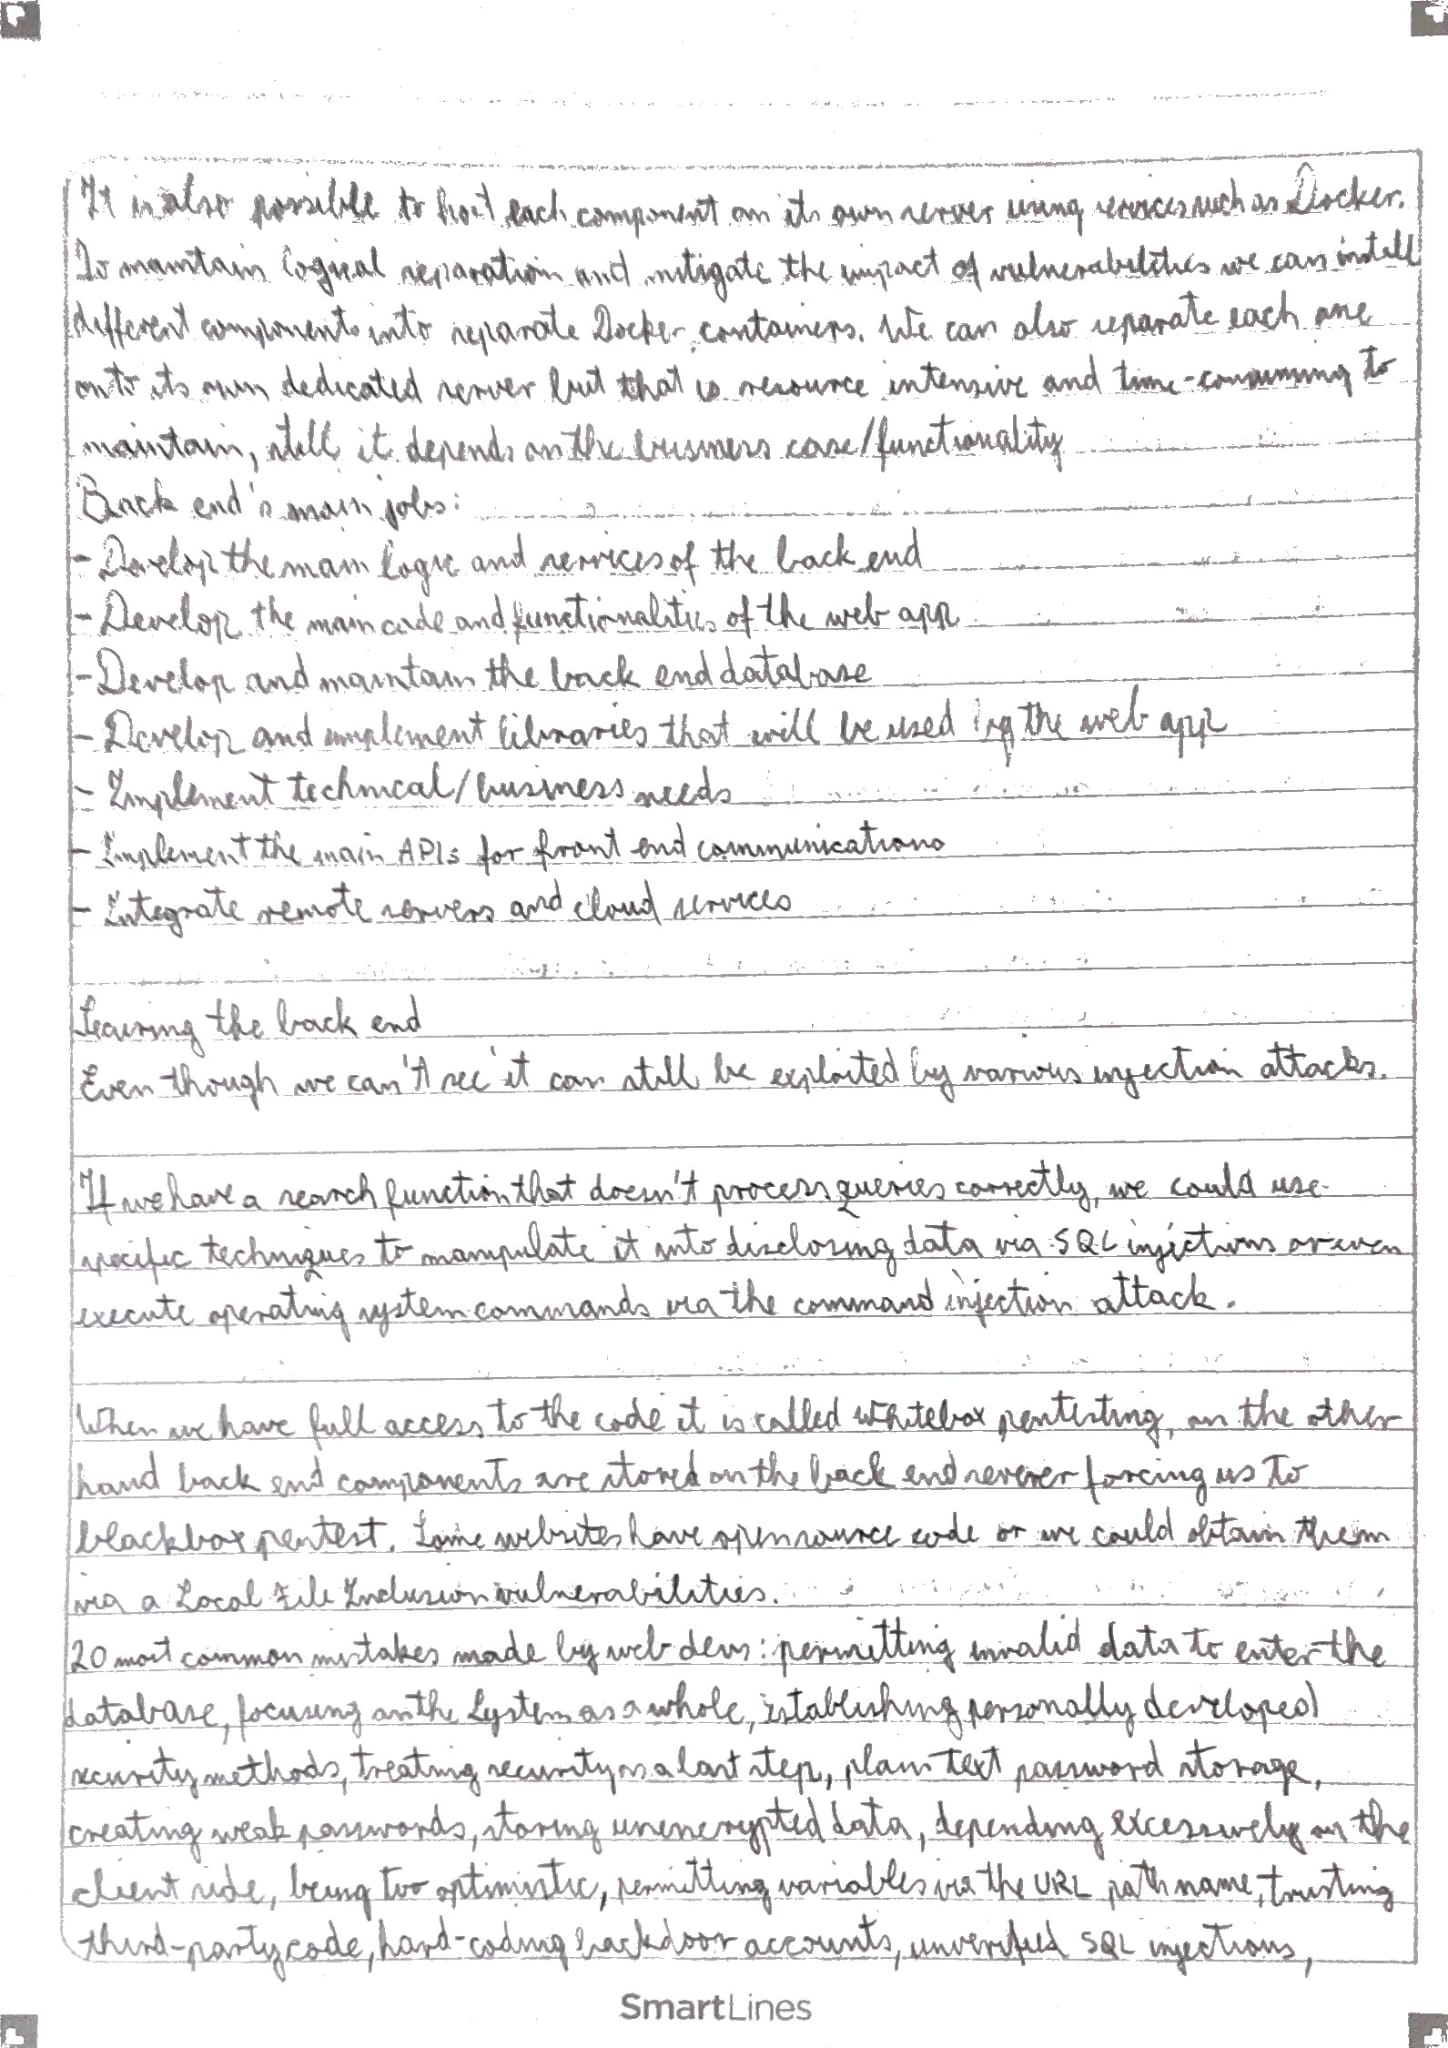 It is also possible to host each component on its own server using services such as Docker.
To maintain logical separation and mitigate the impact of vulnerabilities we can install
different components into separate Docker containers. We can also separate each one
onto its own dedicated server but that is resource intensive and time-consuming to
maintain, still it depends on the business case/functionality
Back end's main jobs:
- Develop the main logic and services of the back end
- Develop the main code and functionalities of the web app
- Develop and maintain the back end database
- Develop and implement libraries that will be used by the web app
- Implement technical/business needs
- Implement the main APIs for front end communications
- Integrate remote servers and cloud services
Securing the back end
Even though we can't see it can still be exploited by various injection attacks.
If we have a search function that doesn't process queries correctly, we could use
specific techniques to manipulate it into disclosing data via SQL injections or even
execute operating system commands via the command injection attack.
When we have full access to the code it is called whitebox pentesting, on the other
hand back end components are stored on the back end server forcing us to
blackbox pentest. Some websites have open source code or we could obtain them
via a Local File Inclusion vulnerabilities.
20 most common mistakes made by web devs: permitting invalid data to enter the
database, focusing on the System as a whole, establishing personally developed
security methods, treating security as a last step, plain text password storage,
creating weak passwords, storing unencrypted data, depending excessively on the
client side, being too optimistic, permitting variables via the URL path name, trusting
third-party code, hard-coding backdoor accounts, unverified SQL injections,
SmartLines